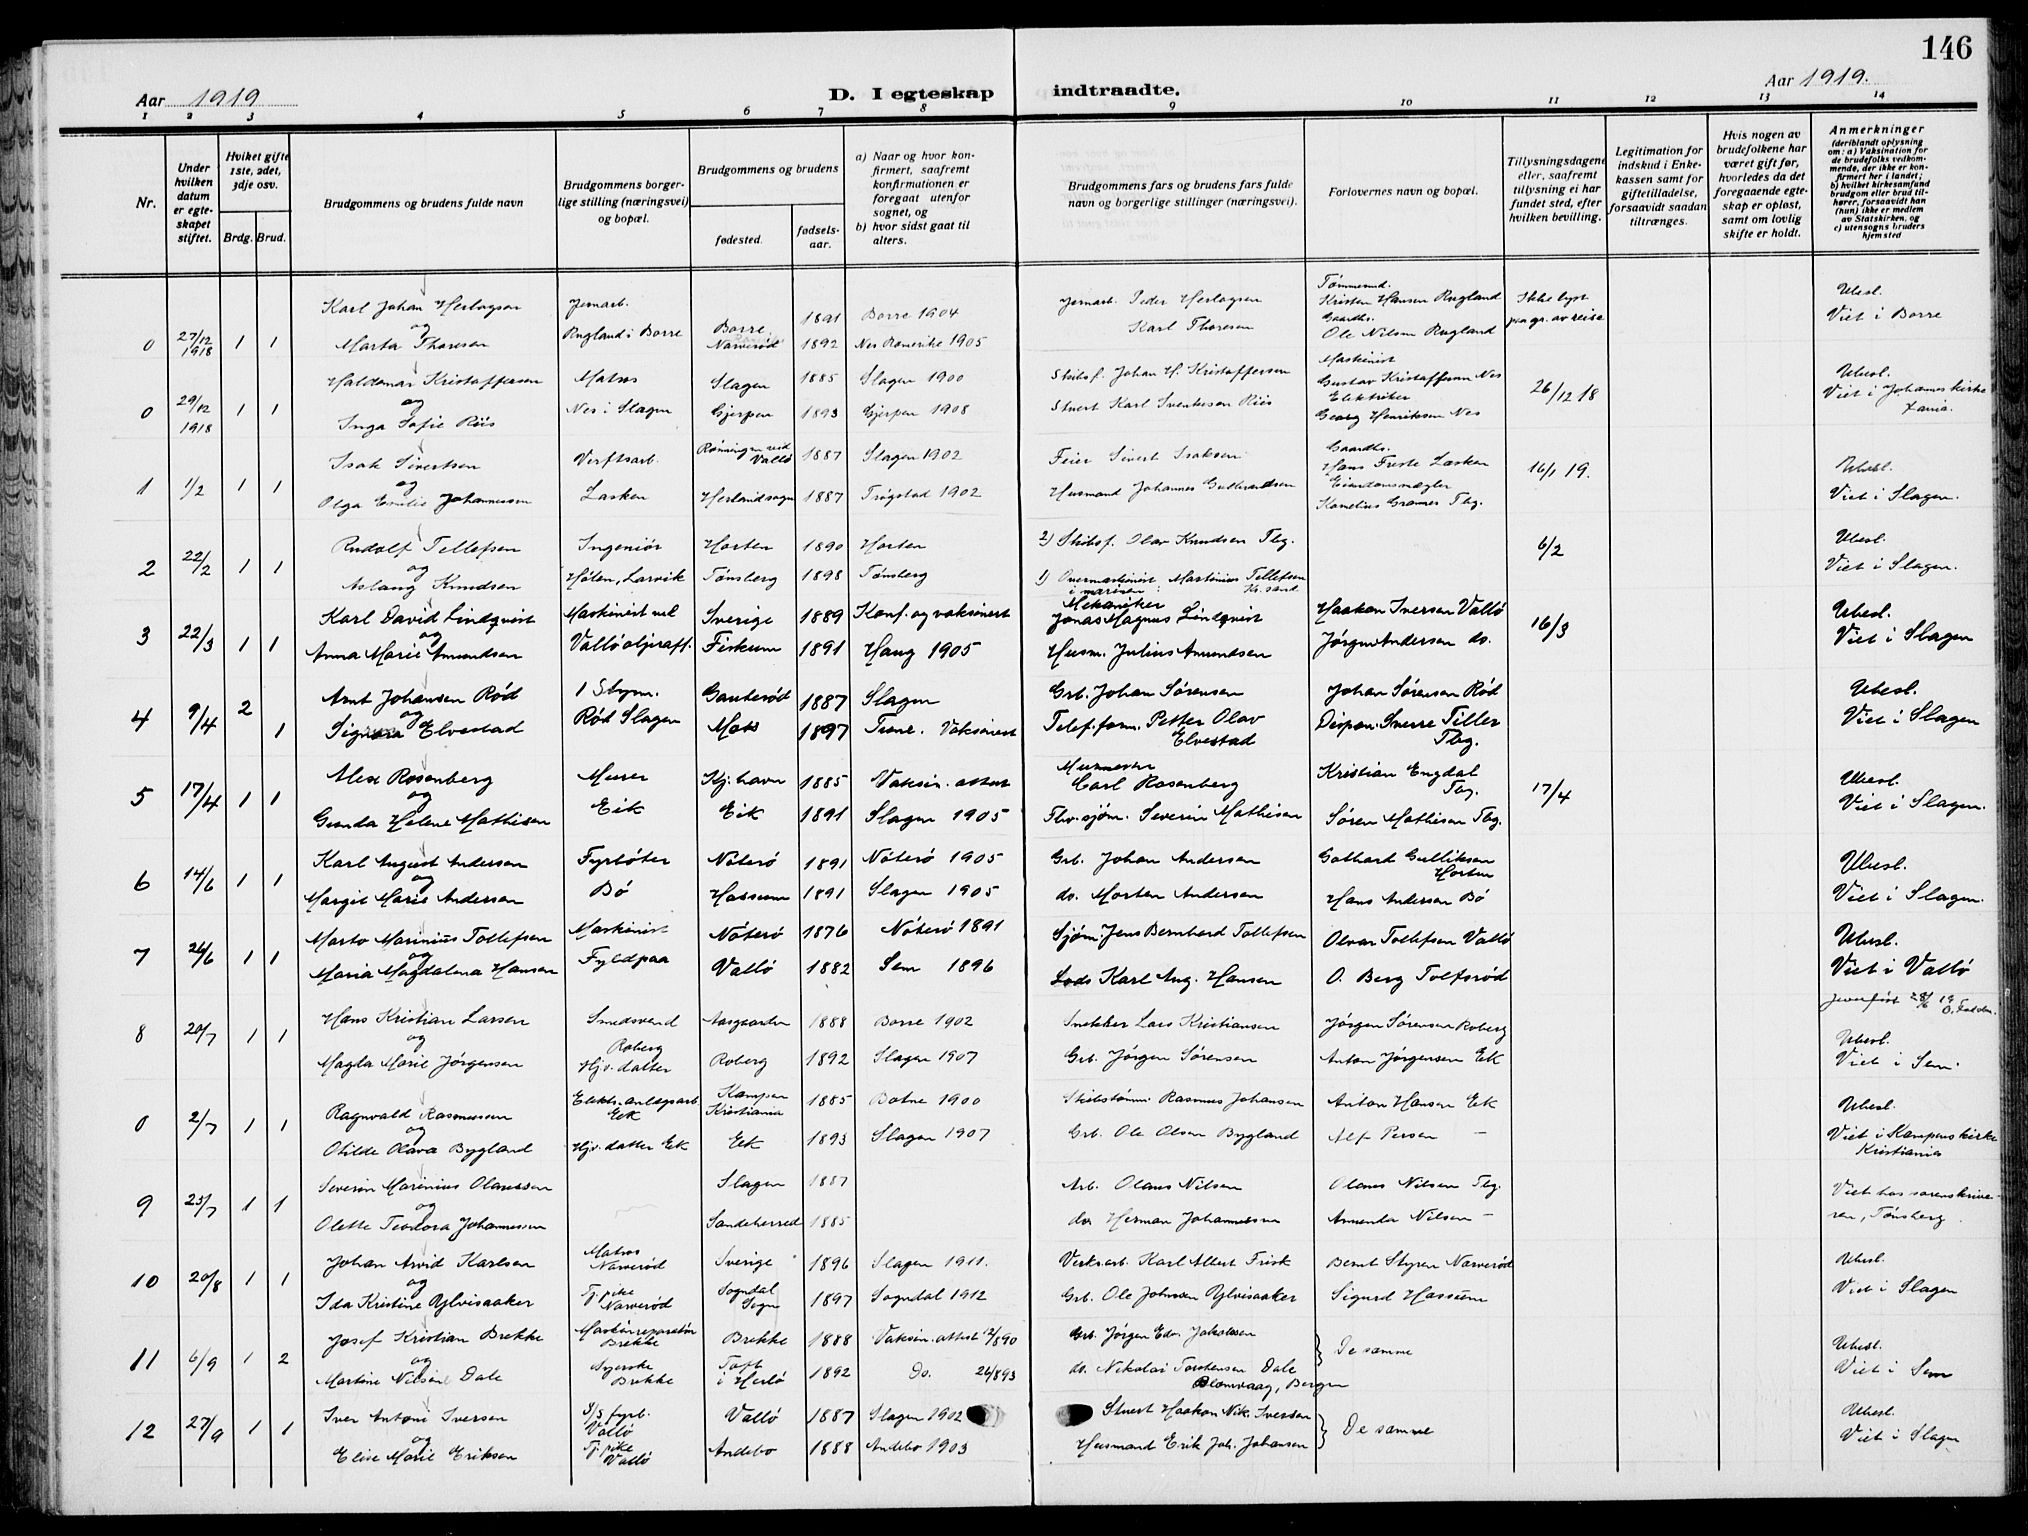 146
Aar 1919
D. I egteskap indtraadte.
Aar 1919.
1 2 3 4 5 6 7 8 9 10 11 12 13 14
Nr.
Under hvilken datum er egteskapet stiftet.
Hviket gifte 1ste, 2det, 3dje osv.
Brdg. Brud.
Brudgommens og brudens fulde navn
Brudgommens borgerlige stilling (næringsvei) og bopæl.
Brudgommens og brudens
fødested.
fødselsaar.
a) Naar og hvor konfirmert, saafremt konfirmationen er foregaat utenfor sognet, og
b) hvor sidst gaat til alters.
Brudgommens fars og brudens fars fulde navn og borgerlige stillinger (næringsvei).
Forlovernes navn og bopæl.
Tillysningsdagene eller, saafremt tillysning ei har fundet sted, efter hvilken bevilling.
Legitimation for indskud i Enkekassen samt for giftetilladelse, forsaavidt saadan tiltrænges.
Hvis nogen av brudefolkene har været gift før, hvorledes da det foregaaende egteskap er opløst, samt om lovlig skifte er holdt.
Anmerkninger
(deriblandt oplysning om: a) Vaksination for de brudefolks vedkommende, der ikke er konfirmert her i landet; b) hvilket kirkesamfund brudgom eller brud tilhører, forsaavidt han (hun) ikke er medlem av Statskirken, og c) utensogns bruders hjemsted
Karl Johan Herlagsen Jernarb. 1891 Borre 1904 Jernarb. Peder Herlagsen Tømmermd. Kristen Hansen Rugland Ikke lyst Ubesl.
0 27/12 1918 1 1 og Rugland i Borre Borre Gaardbr. paa gr. av reise Viet i Borre
Marta Thoresen Narverød 1892 Nes Romerike 1905 Karl Thoresen Ole Nilsen Rugland
Haldemar Kristoffersen Matros Slagen 1885 Slagen 1900 Skibsf. Johan H. Kristoffersen Maskinist Gustav Kristoffersen Nes 26/12 18 Ubesl.
0 29/12 1918 1 1 og Nes i Slagen Gjerpen 1893 Gjerpen 1908 Stuert Karl Svenkesen Riis Elektriker Viet i Johannes kirke
Inga Sofie Riis Georg Henriksen Nes
Isak Sivertsen Verftsarb. Rønningen ved Vallø 1887 Slagen 1902 Feier Sivert Isaksen Gaardbr. Hans Freste Lasken 16/1 19. Ubesl.
1 1/2 1 1 og Lasken 1887 Trøgstad 1902 Husmand Johannes Gulbrandsen Eiendomsmægler Viet i Slagen.
Olga Emilie Johannessen Kornelius Gramer Tbg.
Rudolf Tellefsen Ingeniør Horten 1890 Horten 2) Skibsf. Olav Knudsen Tbg. 6/2 Ubesl.
2 22/2 1 1 og Viet i Slagen.
Aslaug Knudsen Høten, Larvik Tønsberg 1898 Tønsberg 1) Overmaskinist Martinius Tellefsen i marinen Kr.sand
Karl David Lindqvist Maskinist ved Sverige 1889 Konf. og vaksinert Mekaniker Jonas Magnus Lindqvist Haakon Iversen Vallø 16/3 Ubesl.
3 22/3 1 1 og Viet i Slagen
Anna Marie Amundsen Vallø oljeraff. Fiskum 1891 Haug 1905 Husm. Julius Amundsen Jørgen Andersen do.
Arnt Johansen Rød 1 Styrm. Gauterød 1887 Slagen Grb. Johan Sørensen Johan Sørensen Rød Ubesl.
4 9/4 2 1 og Viet i Slagen
Signora Elvestad Rød Slagen Moss 1897 Trane. Vaksinert Telef.form. Petter Olav Elvestad Dispon. Sverre Tiller Tbg.
Alex Rosenberg Murer Kj.havn 1885 Vaksin. attest Murmester Carl Rosenberg Kristian Engdal Tbg. 17/4 Ubesl.
5 17/4 1 1 og Viet i Slagen.
Gunda Helene Mathisen Eik Eik 1891 Slagen 1905 Fhv. sjøm. Severin Mathisen Søren Mathisen Tbg.
Karl August Andersen Fyrbøter Nøterø 1891 Nøterø 1905 Grb. Johan Andersen Gothard Gulliksen Horten Ubesl.
6 14/6 1 1 og Viet i Slagen.
Margit Marie Andersen Bø Hassum 1891 Slagen 1905 do. Morten Andersen Hans Andersen Bø
Marto Marinius Tollefsen Maskinist Nøterø 1876 Nøterø 1891 Sjøm. Jens Bernhard Tollefsen Olvar Tollefsen Vallø Ubesl.
7 26/6 1 1 og Viet i Vallø
Maria Magdalena Hansen Fyldpaa Vallø 1882 Sem 1896 Lods Karl Aug. Hansen O. Berg Tolfsrød
Hans Kristian Larsen Smedsvend Aasgaarden 1888 Borre 1902 Snekker Lars Kristiansen Jørgen Sørensen Roberg
8 20/7 1 1 og Roberg Ubesl.
Magda Marie Jørgensen Hjv. datter Roberg 1892 Slagen 1907 Grb. Jørgen Sørensen Anton Jørgensen Ek Viet i Sem.
Ragnvald Rasmussen Elektr. anlægsarb. Eek Kampen Kristiania 1885 Botne 1900 Skibstømm. Rasmus Johansen Anton Hansen Eek Ubesl.
0 2/7 1 1 og Viet i Kampens kirke Kristiania
Otilde Olava Bygland Hjv. datter Eek Eek 1893 Slagen 1907 Grb. Ole Olsen Bygland Alf Persen —
Severin Marinius Olaussen Slagen 1887 Arb. Olaus Nilsen Olaus Nilsen Tbg. Viet hos sorenskrive-
9 23/7 1 1 og ren, Tønsberg.
Olette Teodora Johannessen Sandeherred 1885 do. Herman Johannessen Amanda Nilsen —
Johan Arvid Karlsen Matros Narverød Sverige 1896 Slagen 1911. Verksarb. Karl Albert Frisk Bernt Styren Narverød Ubesl.
10 20/8 1 1 og Viet i Slagen
Ida Kristine Ylvisaaker Tj.pike Narverød Sogndal Sogn 1897 Sogndal 1912 Grb. Ole Johnsen Ylvisaaker Sigurd Hassum
Josef Kristian Brekke Maskinreparatør Brekke Brekke 1888 Vaksin. attest 12/8 90 Grb. Jørgen Edv. Jakobsen De samme Ubesl.
11 6/9 1 2 og Viet i Sem
Martine Nilsen Dale Syerske Brekke Toft i Herlø 1892 Do. 26/8 93 do. Nikolai Torstensen Dale Blomvaag, Bergen
Iver Antoni Iversen S/S fyrb. Vallø Vallø 1887 Slagen 1902 Stuert Haakon Nik. Iversen De samme Ubesl.
12 27/9 1 1 og Viet i Slagen
Elise Marie Eriksen Tj. pike Vallø Andebo 1888 Andebo 1903 Husmand Erik Joh. Johansen